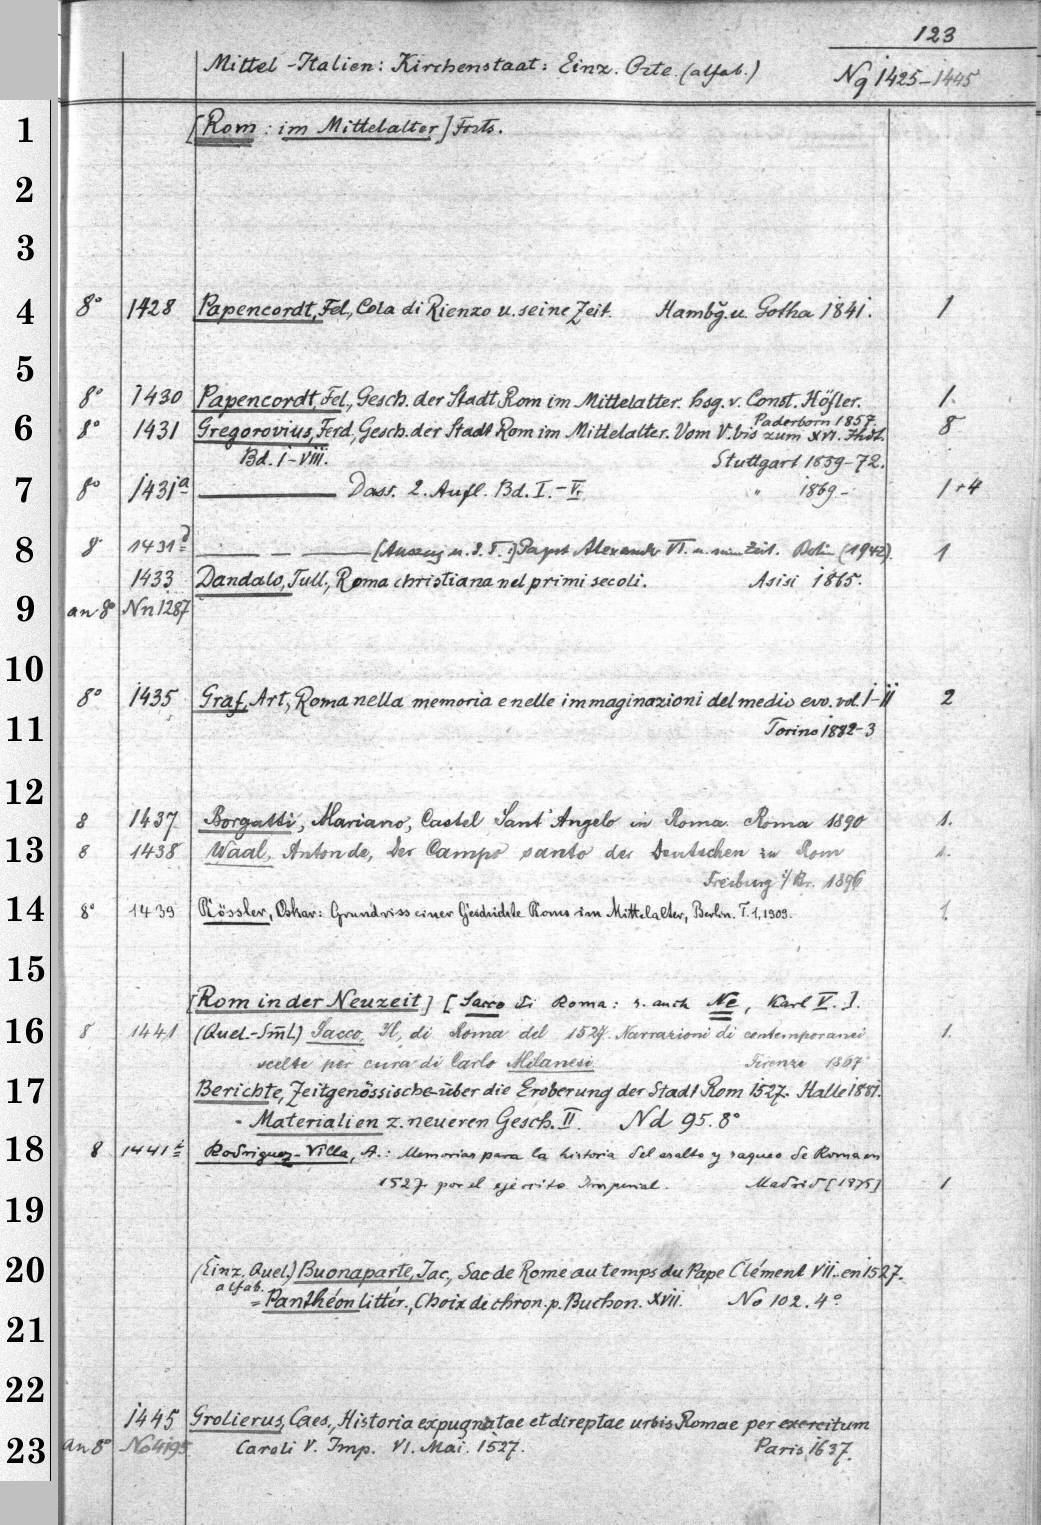 123
Mittel-Italien: Kirchenstaat: Einz. Orte (alfab.) Nq 1425-1445
1 [Rom: im Mittelalter] Forts.
2
3
4 8° 1428 Papencordt, Fel., Cola di Rienzo u. seine Zeit. Hambg. u. Gotha 1841. 1
5
8° 1430 Papencordt, Fel., Gesch. der Stadt Rom im Mittelalter. hsg. v. Const. Höfler. 1.
Paderborn 1857.
6 8° 1431 Gregorovius, Ferd., Gesch. der Stadt Rom im Mittelalter. Vom V. bis zum XVI. Jhdt. 8
Bd. I-VIII. Stuttgart 1859-72.
7 8° 1431a Dass. 2. Aufl. Bd. I.-V. " 1869- 1+4
8 8° 1431 Papst Alexander VI. u. seine Zeit. (1942). 1
1433 Dandalo, Tull., Roma christiana nel primi secoli. Asisi 1865.
9 an 8° Nn 1287
10
8° 1435 Graf, Art., Roma nella memoria e nelle immaginazioni del medio evo. vol. I-II 2
11 Torino 1882-3
12
8 1437 Borgatti, Mariano, Castel Sant' Angelo in Roma. Roma 1890 1.
13 8 1438 Waal, Anton de, Der Campo santo der Deutschen zu Rom 1.
Freiburg i/Br. 1896
14 8° 1439 Rössler, Oskar: Grundriss einer Geschichte Roms im Mittelalter, Berlin. T. 1, 1909. 1.
15
[Rom in der Neuzeit] [Sacco di Roma: s. auch Ne, Karl V.].
16 8 1441 (Quel.-Sml.) Sacco, Il, di Roma del 1527. Narrazioni di contemporanei 1.
scelte per cura di Carlo Milanesi Firenze 1867
17 Berichte, Zeitgenössische über die Eroberung der Stadt Rom 1527. Halle 1881.
- Materialien z. neueren Gesch. II. Nd 95. 8°
18 8 1441 Rodriguez-Villa, A.: Memorias para la historia del asalto y saqueo de Roma en
1527 por el ejército Imperial. Madrid [1875] 1
19
20 (Einz. Quel.) Buonaparte, Jac., Sac de Rome au temps du Pape Clément VII. en 1527.
alfab.
= Panthéon littér., Choix de chron. p. Buchon. XVII. No 102. 4°
21
22
1445 Grolierus, Caes., Historia expugnatae et direptae urbis Romae per exercitum
23 an 8° No 4195 Caroli V. Imp. VI. Mai. 1527. Paris, 1637.